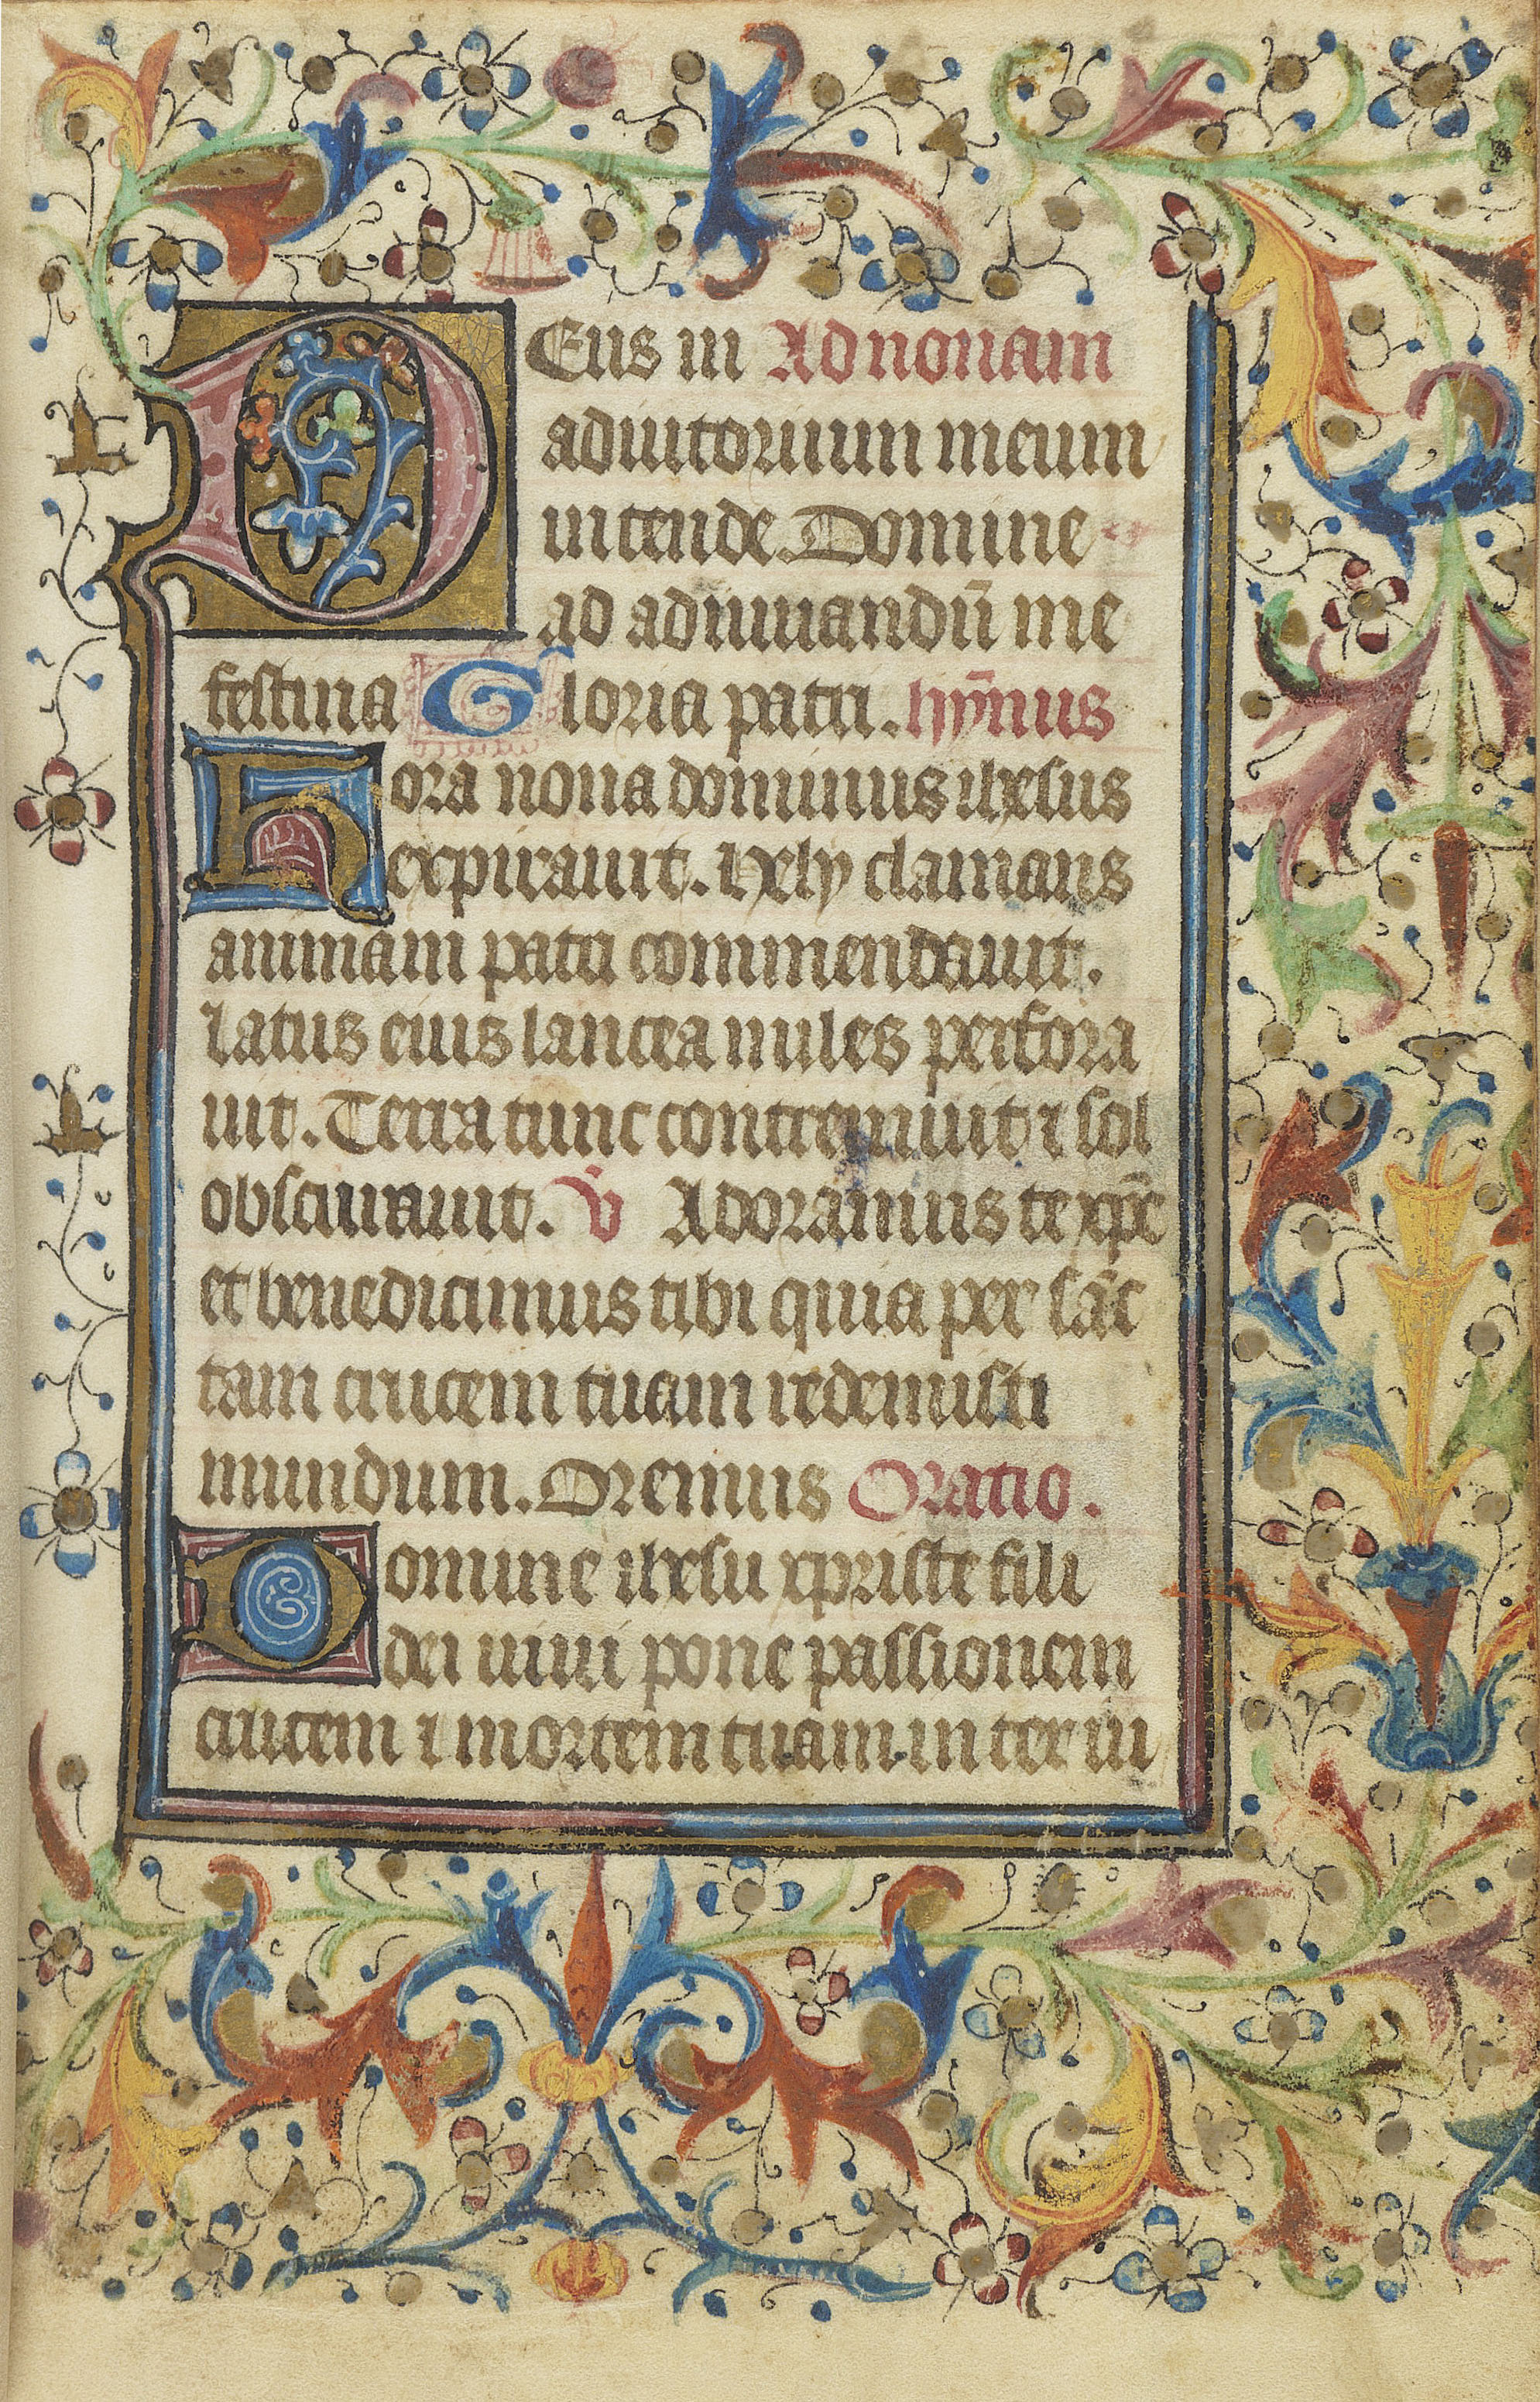 DEus in Ad nonam
adiutorium meum
intende Domine
ad adiuuandū me
festina Gloria patri. hȳnus
Hora nona dominus ihesus
expirauit. Hely clamans
animam patri commendauit.
Latus eius lancea miles perfora
uit. Terra tunc contremuit ⁊ sol
obscurauit. v̄ Adoramus te xp̄e
et benedicimus tibi quia per sāc
tam crucem tuam redemisti
mundum. Oremus Oratio.
Domine ihesu xpriste fili
dei uiui pone passionem
crucem ⁊ mortem tuam inter iu